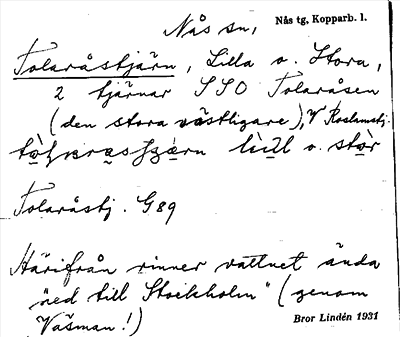 Nås sn, Nås tg, Kopparb. l.
Tolaråstjärn, Lilla o. Stora,
2 tjärnar SSO Tolaråsen
(den stora västligare), V Roslamstj.
lìdl o. stòr
Tolaråstj. G89
Härifrån rinner vattnet ända
"ned till Stockholm" (genom
Väsman!)
Bror Lindén 1931